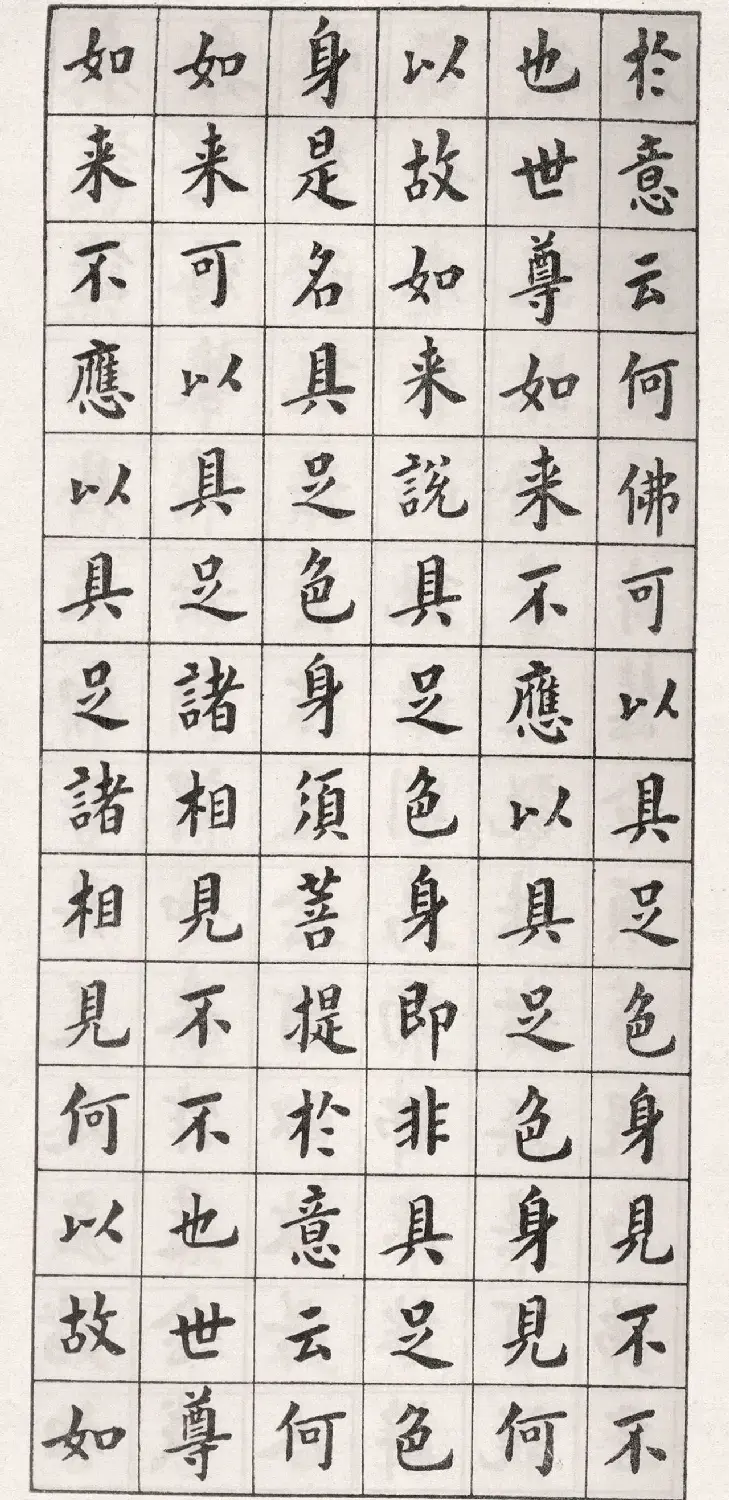 於意云何佛可以具足色身見不不
也世尊如来不應以具足色身見何
以故如来說具足色身即非具足色
身是名具足色身須菩提於意云何
如来可以具足諸相見不不也世尊
如来不應以具足諸相見何以故如